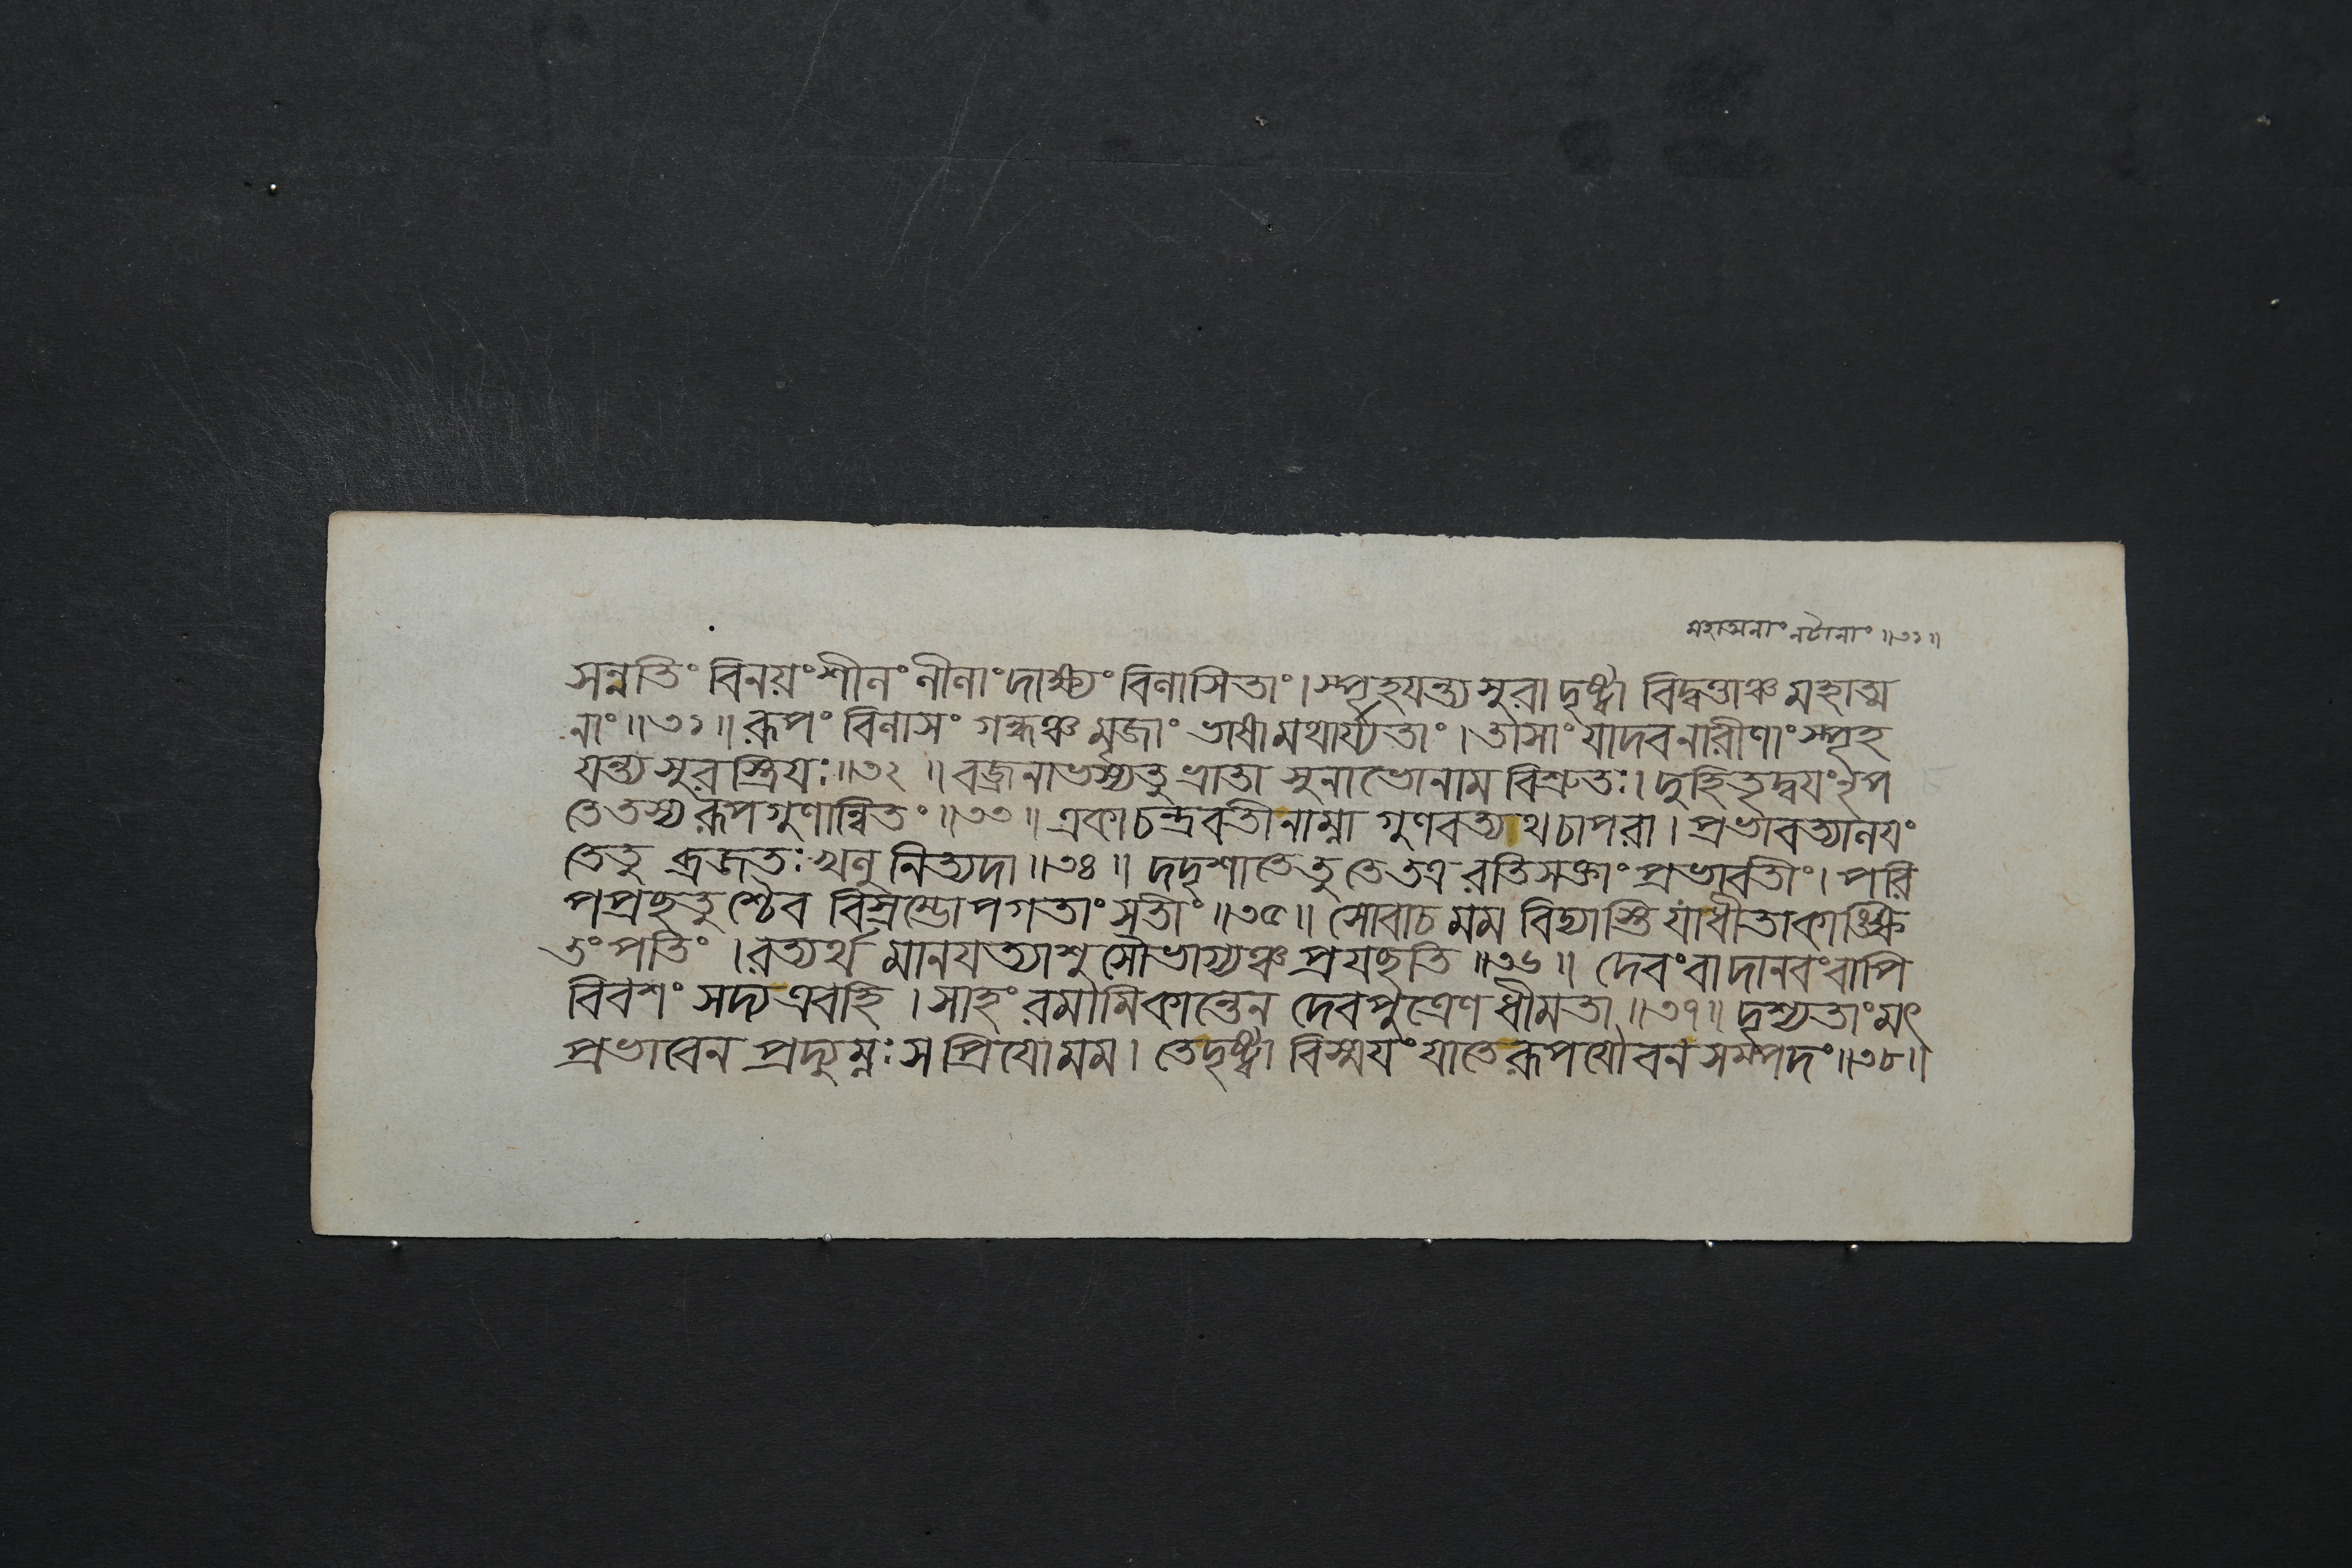 মহাত্মনাং নটানাং ॥৩১॥
সন্নতিং বিনয়ং শীলং লীলাং দাক্ষ্যং বিলাসিতাং । স্পৃহযন্ত্যসুরা দৃষ্ট্বা বিদ্বত্তাঞ্চ মহাত্ম
নাং ॥৩১॥ রূপং বিলাসং গন্ধঞ্চ মৃজাং ভাষামথার্য্যতাং । তাসাং যাদবনারীণাং স্পৃহ
যন্ত্যসুরস্ত্রিযঃ ॥৩২॥ বজ্রনাভস্যতু ভ্রাতা সুনাভোনাম বিশ্রুতঃ । দুহিতৃদ্বযং নৃপ
তেতস্য রূপগুণান্বিতং ॥৩৩॥ একা চন্দ্রবতীনাম্না গুণবত্যথচাপরা । প্রভাবত্যালযং
তেতু ব্রজতঃ খলু নিত্যদা ॥৩৪॥ দদৃশাতেতু তেতত্র রতিসক্তাং প্রভাবতীং । পরি
পপ্রছতুশ্চৈব বিস্রম্ভোপগতাং সতীং ॥৩৫॥ সোবাচ মম বিদ্যাস্তি যাধীতাকাঙ্ক্ষি
তং পতিং । রত্যর্থ মানযত্যাশু সৌভাগ্যঞ্চ প্রযছতি ॥৩৬॥ দেবংবা দানবংবাপি
বিবশং সদ্য এবহি । সাহং রমামিকান্তেন দেবপুত্রেণ ধীমতা ॥৩৭॥ দৃশ্যতাংমৎ
প্রভাবেন প্রদ্যুম্নঃ স প্রিযোমম । তেদৃষ্ট্বা বিস্মযং যাতেরূপযৌবনসম্পদং ॥৩৮॥